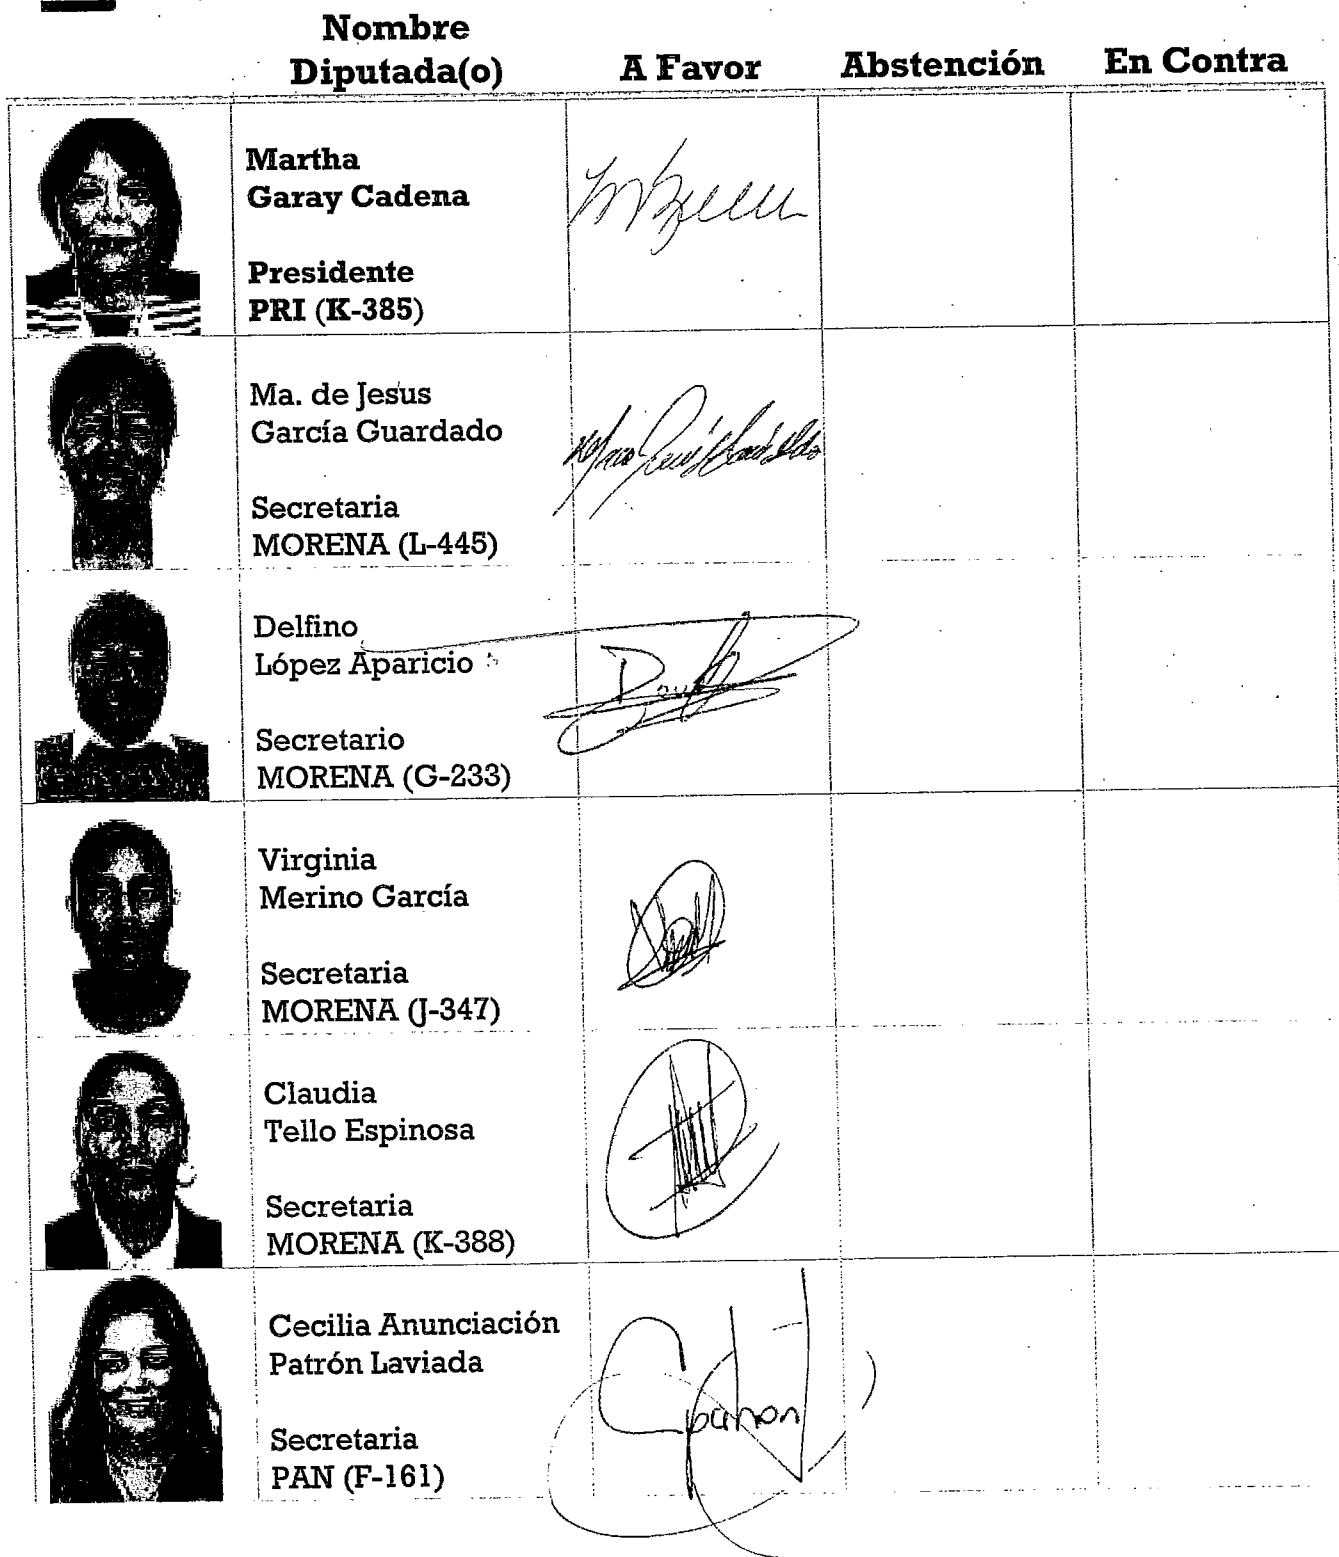 Nombre
Diputada(o)
A Favor
Abstención
En Contra
Martha
Garay Cadena
Presidente
PRI (K-385)
Ma. de Jesus
García Guardado
Secretaria
MORENA (L-445)
Delfino
López Aparicio
Secretario
MORENA (G-233)
Virginia
Merino García
Secretaria
MORENA (J-347)
Claudia
Tello Espinosa
Secretaria
MORENA (K-388)
Cecilia Anunciación
Patrón Laviada
Secretaria
PAN (F-161)